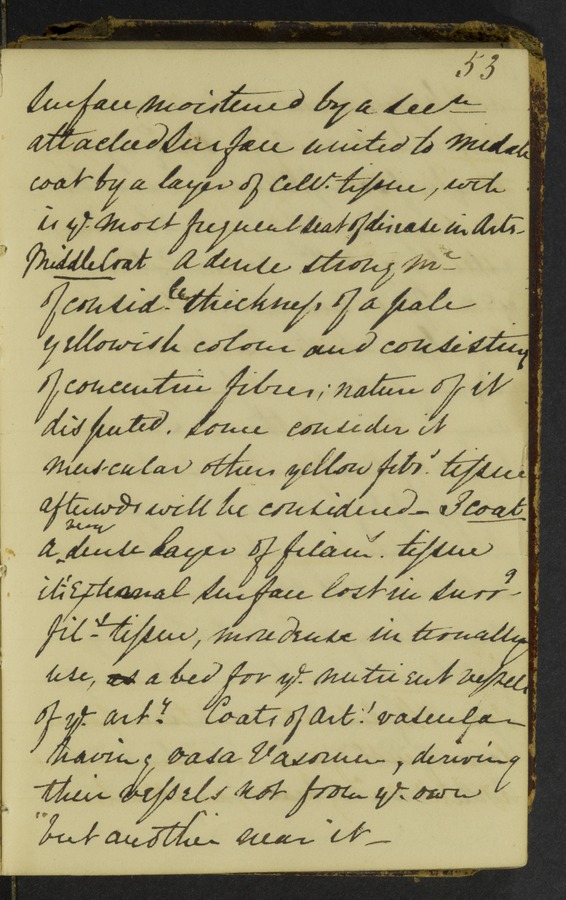 53
surface moistened by a secn
attached surface united to middle
coat by a layer of cellr. tissue, wch
is ye. most frequent seat of disease in Arts.
Middle Coat A dense strong me
of considle thickness of a pale
yellowish colour and consisting
of concentric fibres; nature of it
disputed. some consider it
muscular others yellow fibs. tissue
afterwds will be considered - 3 coat
a very dense layer of filams. tissue
its External surface lost in surrg
fils tissue, more dense internally
use, as a bed for ye. nutrient vessels
of ye. arty. Coats of Art: vascular
having vasa Vasorum, deriving
their vessels not from ye. own
but another near it -